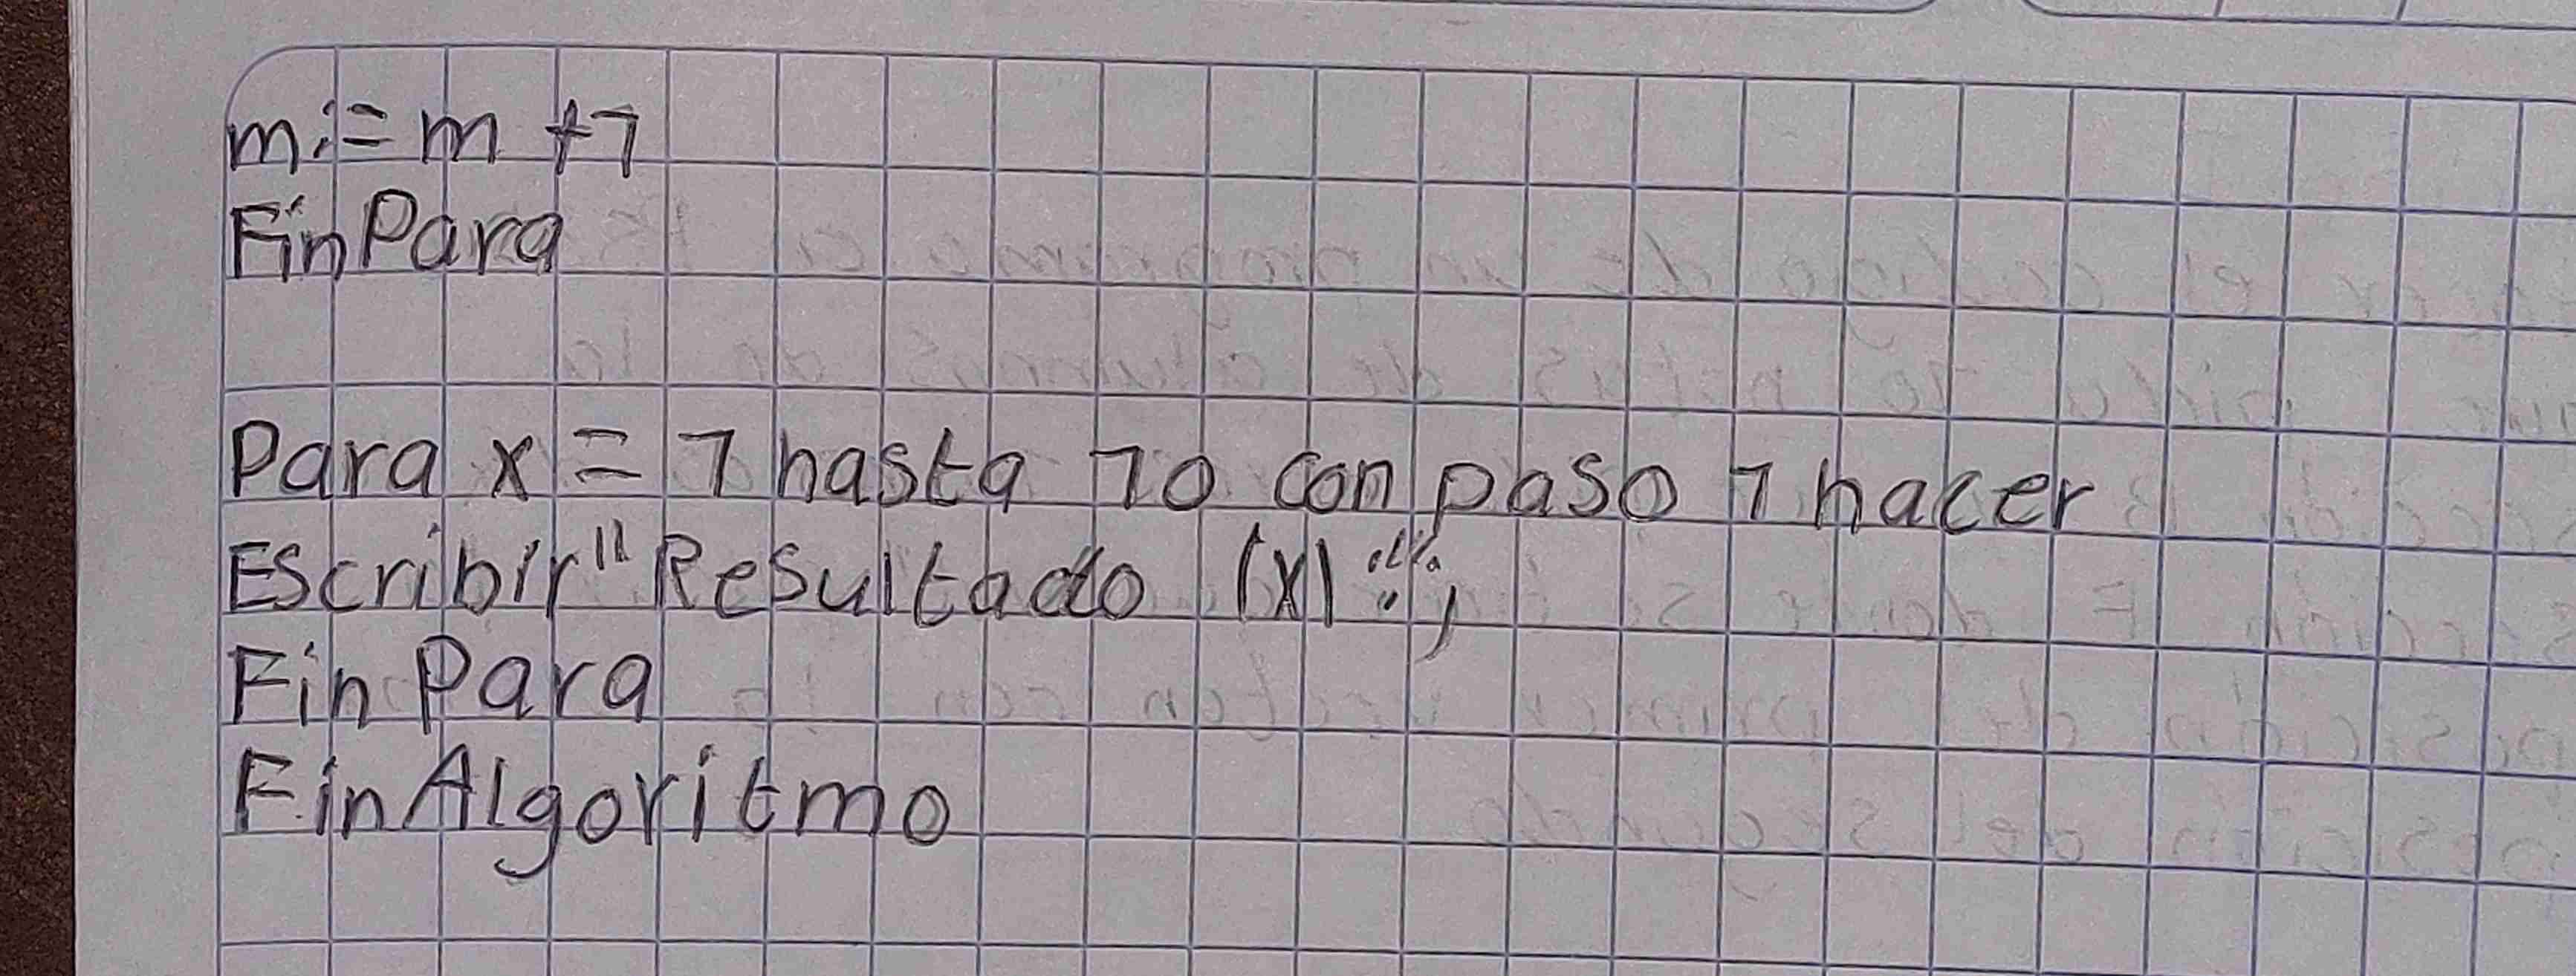 m:= m +1
FinPara
Para x = 1 hasta 10 con paso 1 hacer
Escribir "Resultado (x) :";
Fin Para
FinAlgoritmo